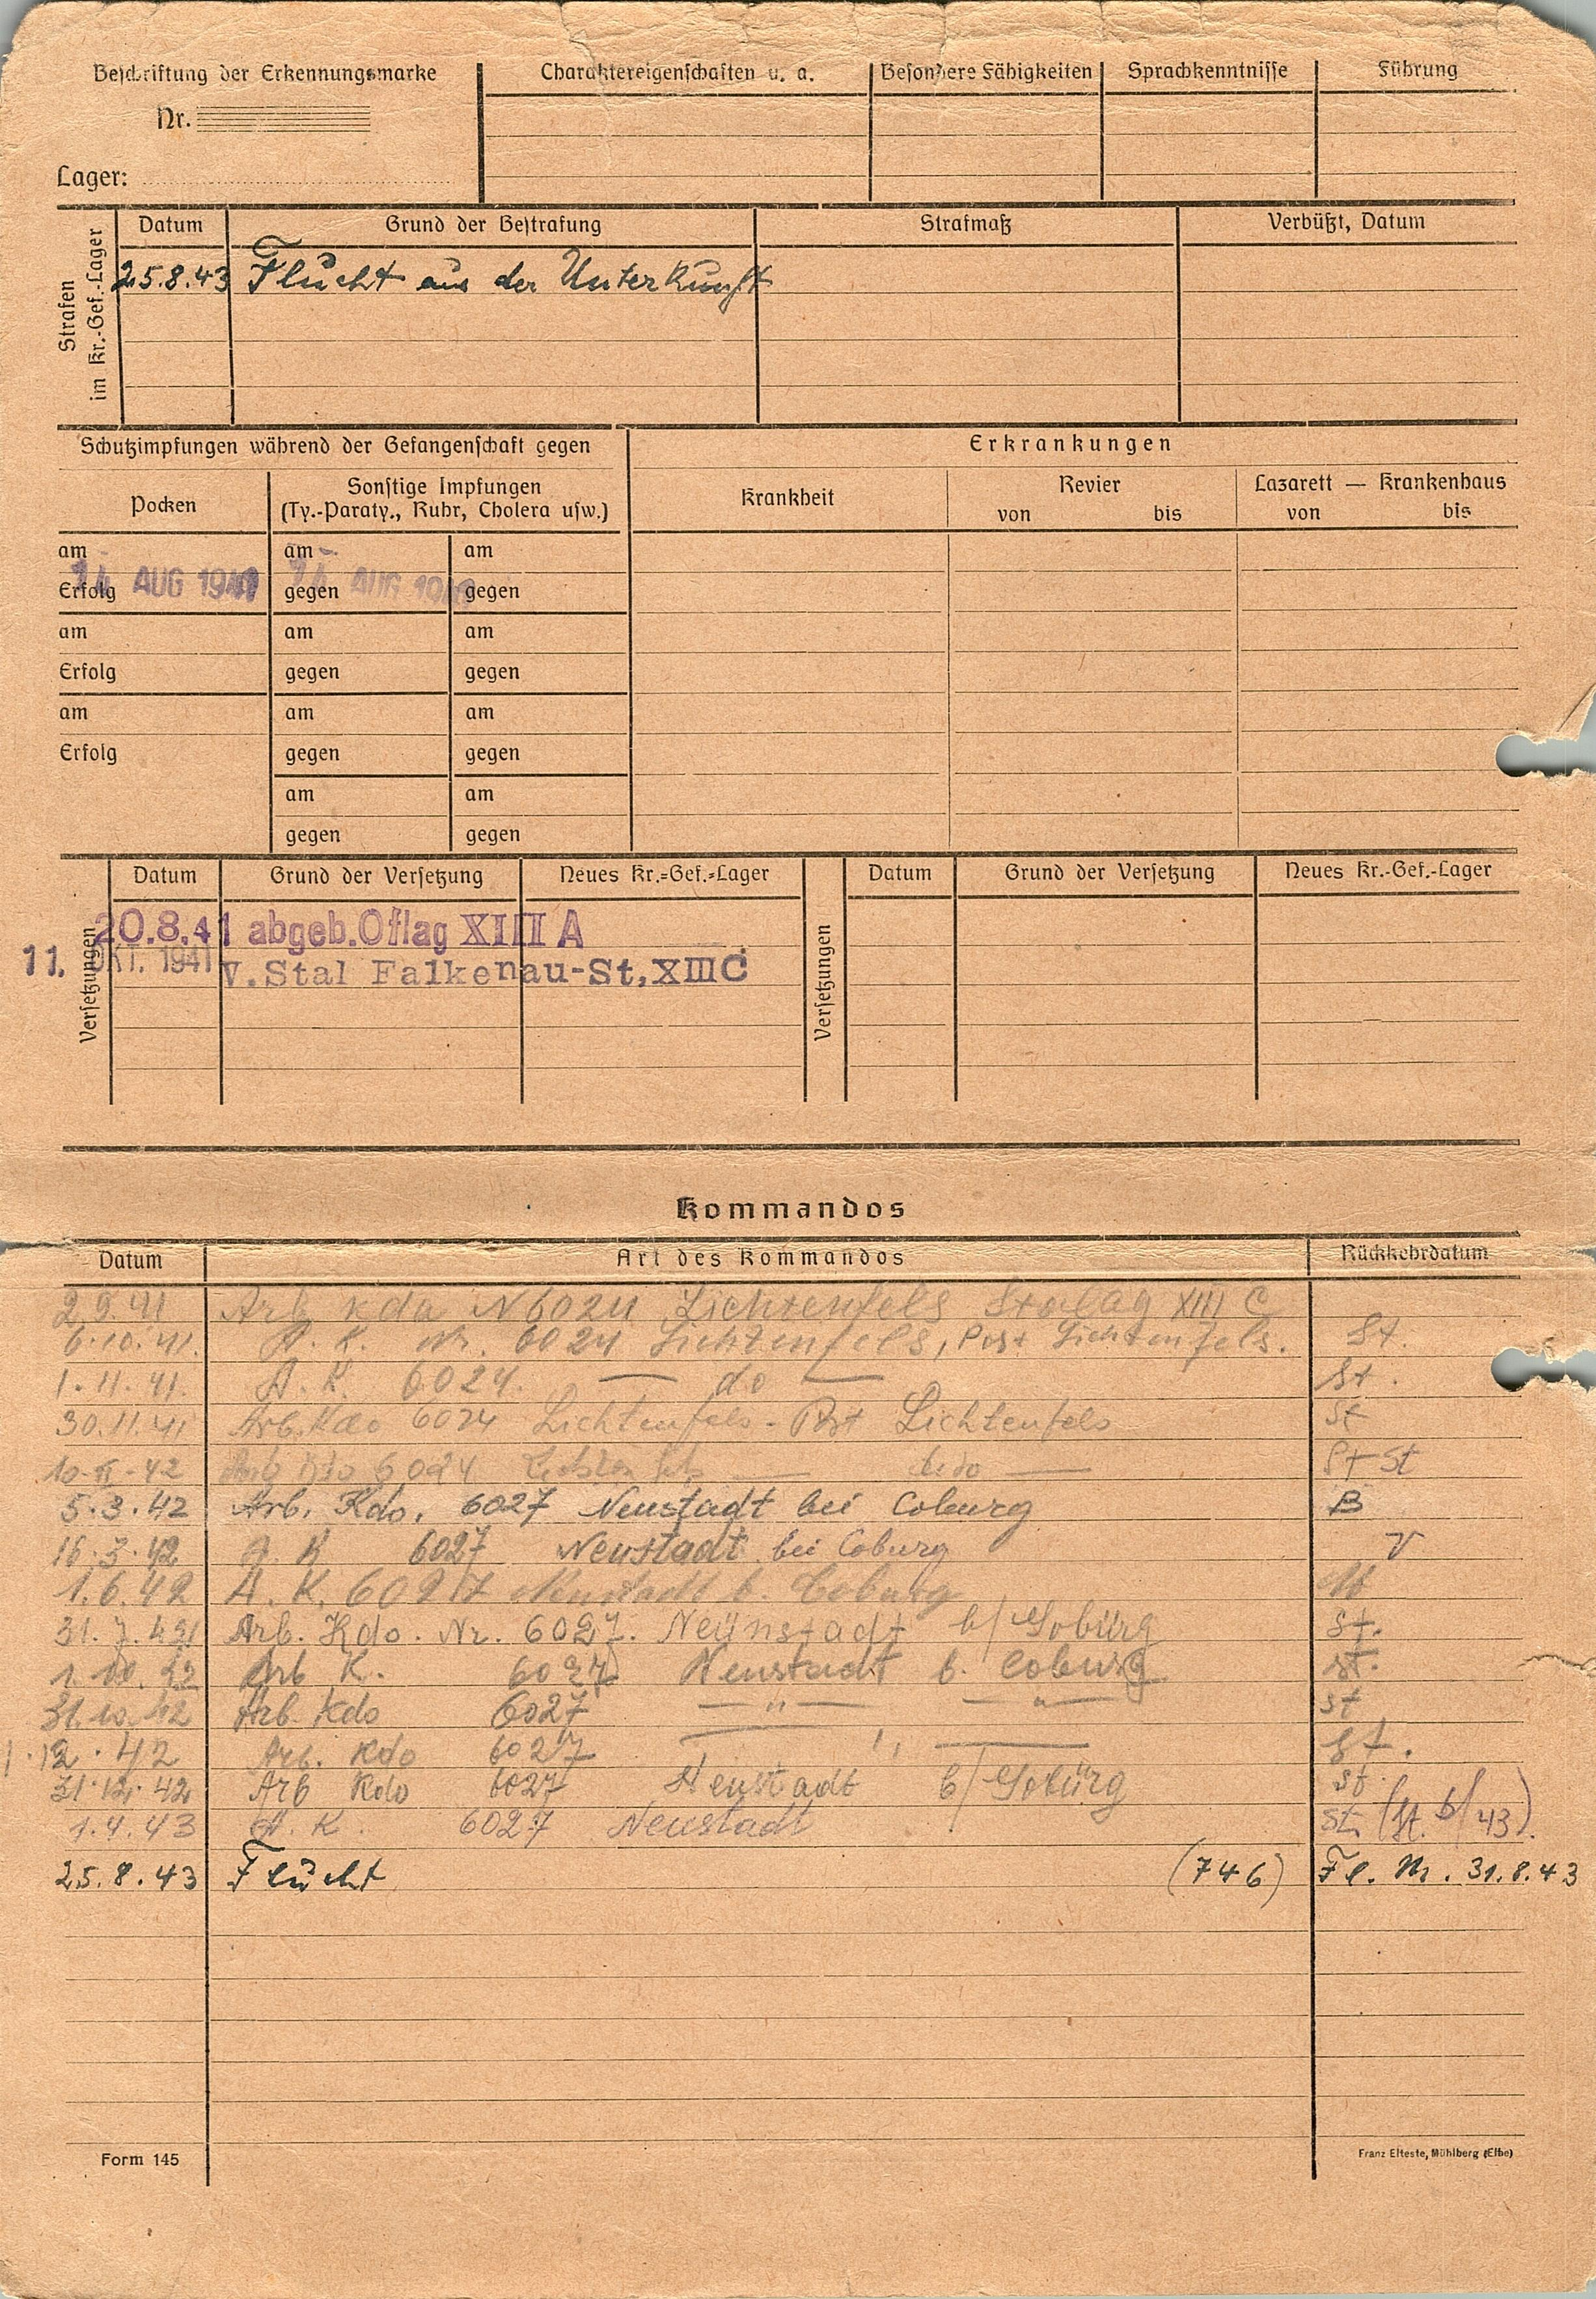 Beschriftung der Erkennungsmarke
Nr.
Lager:
Charaktereigenschaften u. a.
Besondere Fähigkeiten
Sprachkenntnisse
Führung
Strafen
im Kr.-Gef.-Lager
Datum Grund der Bestrafung Strafmaß Verbüßt, Datum
25.8.43 Flucht aus der Unterkunft
Schutzimpfungen während der Gefangenschaft gegen
Pocken
Sonstige Impfungen
(Ty.-Paraty., Ruhr, Cholera usw.)
am am am
14 AUG 1941 14 AUG 1941
Erfolg gegen gegen
am am am
Erfolg gegen gegen
am am am
Erfolg gegen gegen
am am
gegen gegen
Erkrankungen
Krankheit
Revier
von bis
Lazarett — Krankenhaus
von bis
Versetzungen
Datum Grund der Versetzung Neues Kr.=Gef.=Lager
20.8.41 abgeb. Oflag XIII A
11. OKT. 1941 V. Stal Falkenau-St, XIII C
Versetzungen
Datum Grund der Versetzung Neues Kr.-Gef.-Lager
Kommandos
Datum Art des Kommandos Rückkehrdatum
2.9.41 Arb Kdo N 6024 Lichtenfels Stalag XIII C
6.10.41. A. K. Nr. 6024 Lichtenfels, Post Lichtenfels. St.
1.11.41. A. K. 6024. — do — St.
30.11.41 Arb. Kdo 6024 Lichtenfels - Post Lichtenfels St
10.II.42 Arb Kdo 6024 — — St
5.3.42 Arb. Kdo. 6027 Neustadt bei Coburg B
16.3.42 A. K 6027 Neustadt bei Coburg V
1.6.42 A. K. 6027 Neustadt b. Coburg
31.7.42 Arb. Kdo. Nr. 6027. Neünstadt b/Goburg St.
1.10.42 Arb K. 6027 Neustadt b. Coburg st.
31.10.42 Arb. Kdo 6027 — " — — " — st
1.12.42 Arb. Kdo 6027 — " — St.
31.12.42 Arb Kdo 6027 Neustadt b/Goburg st.
1.4.43 A. K. 6027 Neustadt St. (St. 6/43).
25.8.43 Flucht (746) Fl. M. 31.8.43
Form 145
Franz Elteste, Mühlberg (Elbe)